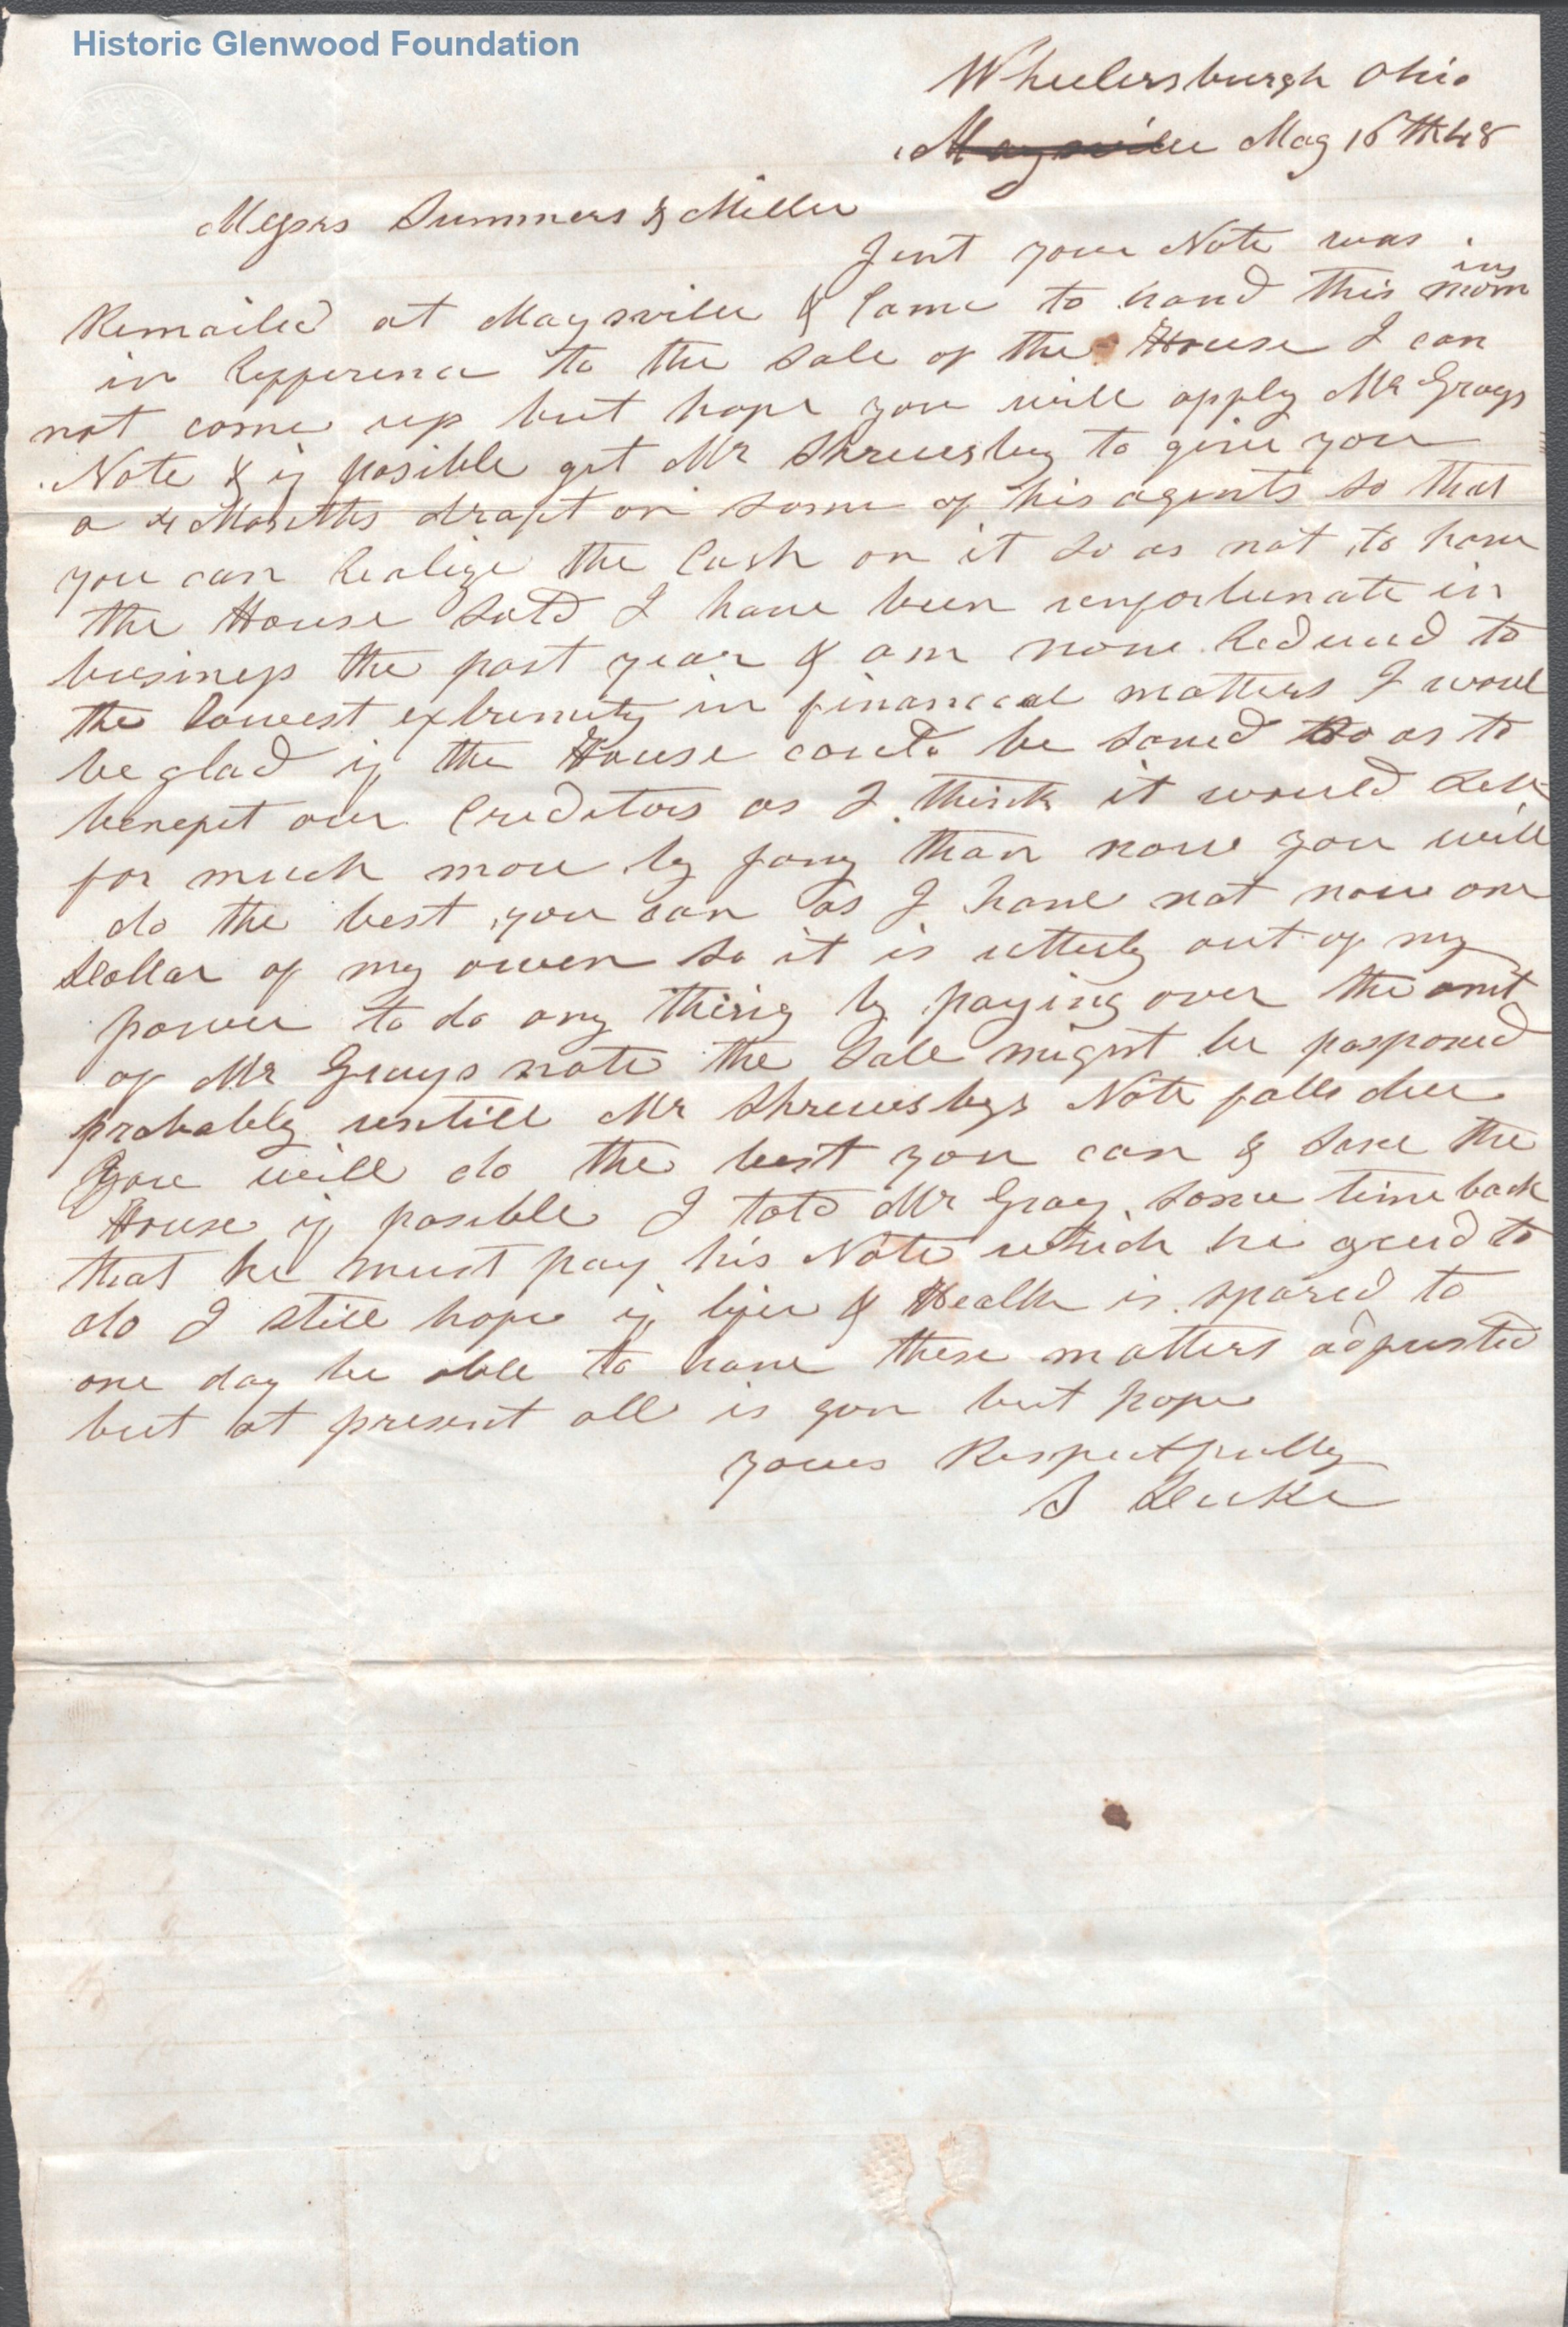 Historic Glenwood Foundation
Wheelersburgh Ohio
Maysville May 16th 48
Messrs Summers & Miller
Gent your Note was
Remailed at Maysville & Came to hand this morning
in Refference to the Sale of the House I can
not come up but hope you will apply Mr Grays
Note & if posible get Mr Shrewsbuy to give you
a 4 Months draft on Some of his agents So that
you can Realize the Cash on it So as not to have
the House Sold I have been unfortunate in
business the past year & am now Reduced to
the lowest extremity in financial matters I woul
be glad if the House could be Saved So as to
benefit our Creditors as I think it would Sell
for much more by far than now you will
do the best you can as I have not now one
Dollar of my owen So it is utterly out of my
power to do any thing by paying over the amt
of Mr Grays note the Sale might be posponed
probably untill Mr Shrewsbys Note falls due
you will do the best you can & Save the
House if posible I told Mr Gray Some time back
that he must pay his Note which he agreed to
do I still hope if life & Health is spared to
one day be able to have these matters adjusted
but at present all is gon but hope
yours Respectfully
S Duke